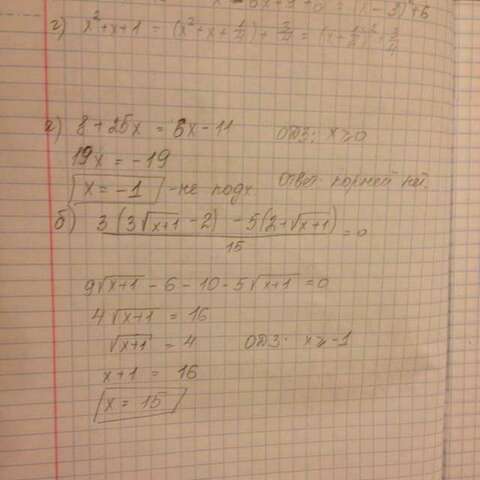 - 6x + 9 + 6 = (x - 3)² + 6
г) x² + x + 1 = (x² + x + 1/4) + 3/4 = (x + 1/2)² + 3/4
а) 8 + 25x = 6x - 11 ОДЗ: x ≥ 0
19x = -19
x = -1 - не подх. Ответ корней нет.
б) 3(3√(x+1) - 2) - 5(2+√(x+1)) / 15 = 0
9√(x+1) - 6 - 10 - 5√(x+1) = 0
4√(x+1) = 16
√(x+1) = 4 ОДЗ: x ≥ -1
x + 1 = 16
x = 15